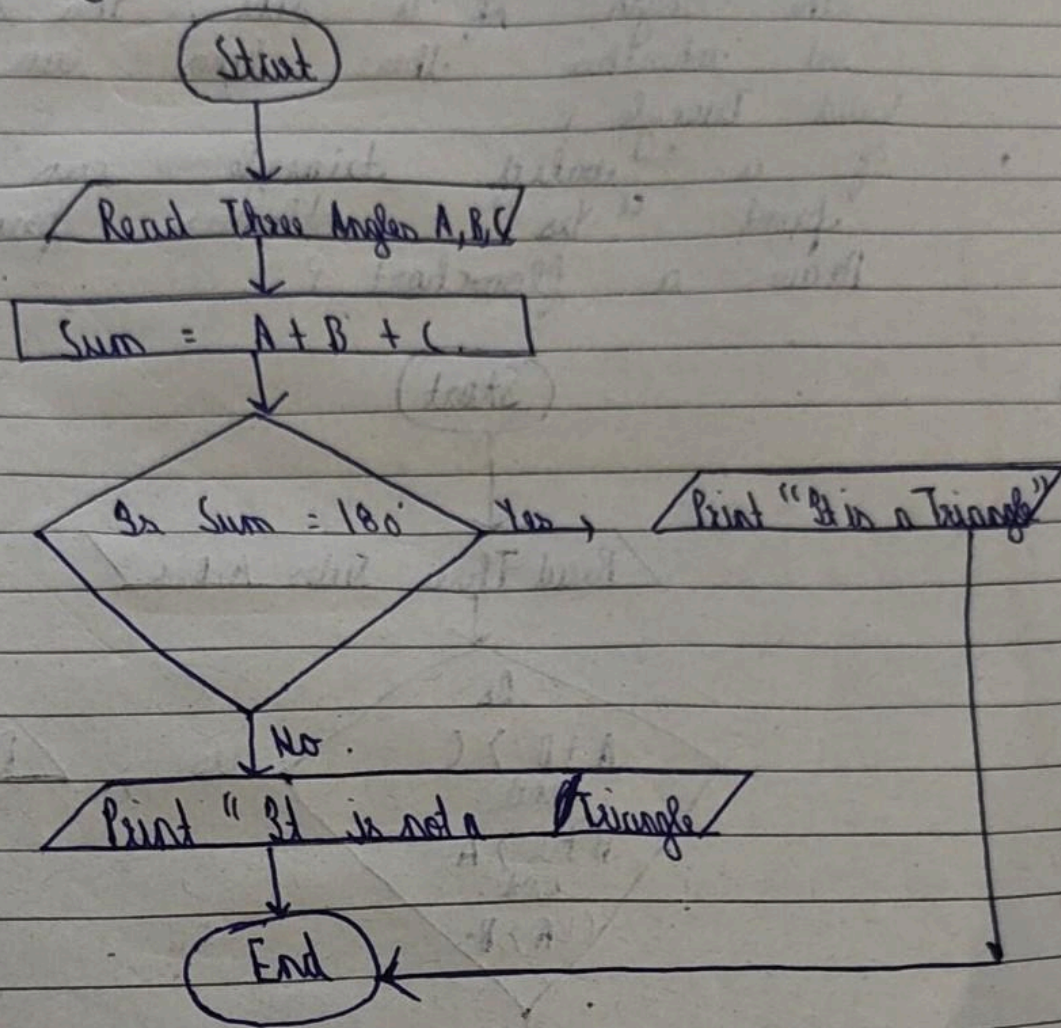 Start
Read Three Angles A, B, C
Sum = A + B + C.
Is Sum = 180° Yes Print "It is a Triangle"
No.
Print "It is not a Triangle
End